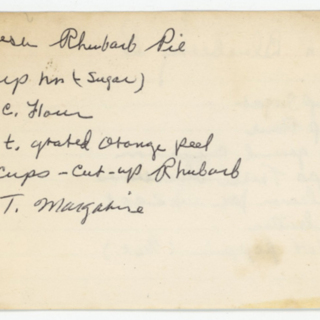 Rhubarb Pie
(Sugar)
C. Flour
t. grated orange peel
cups - cut-up Rhubarb
T. Margarine